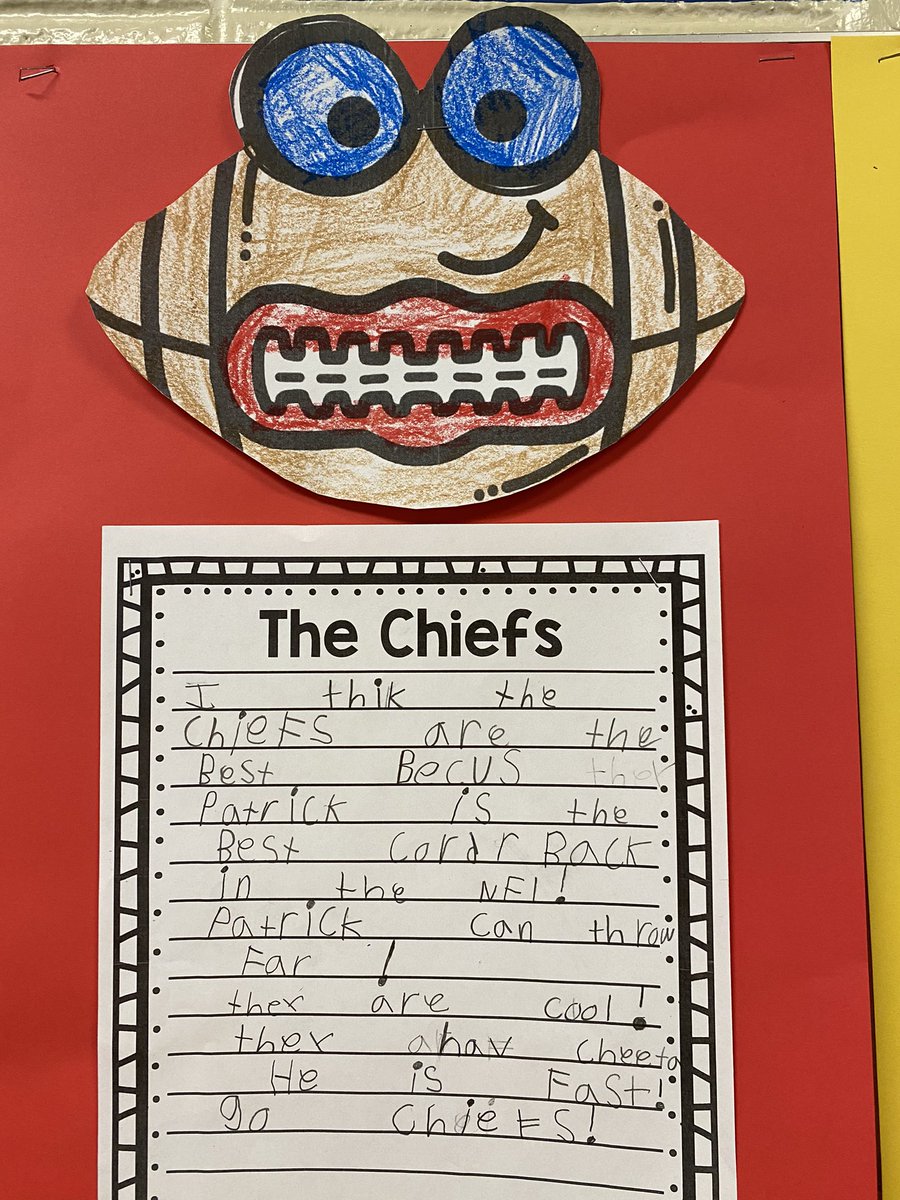 The Chiefs
I thik the
ChieFS are the
Best Becus ther
Patrick is the
Best Cordr Back
in the NFl!
Patrick can throw
Far !
ther are cool!
ther hav cheeta
He is Fast!
go ChieFS!